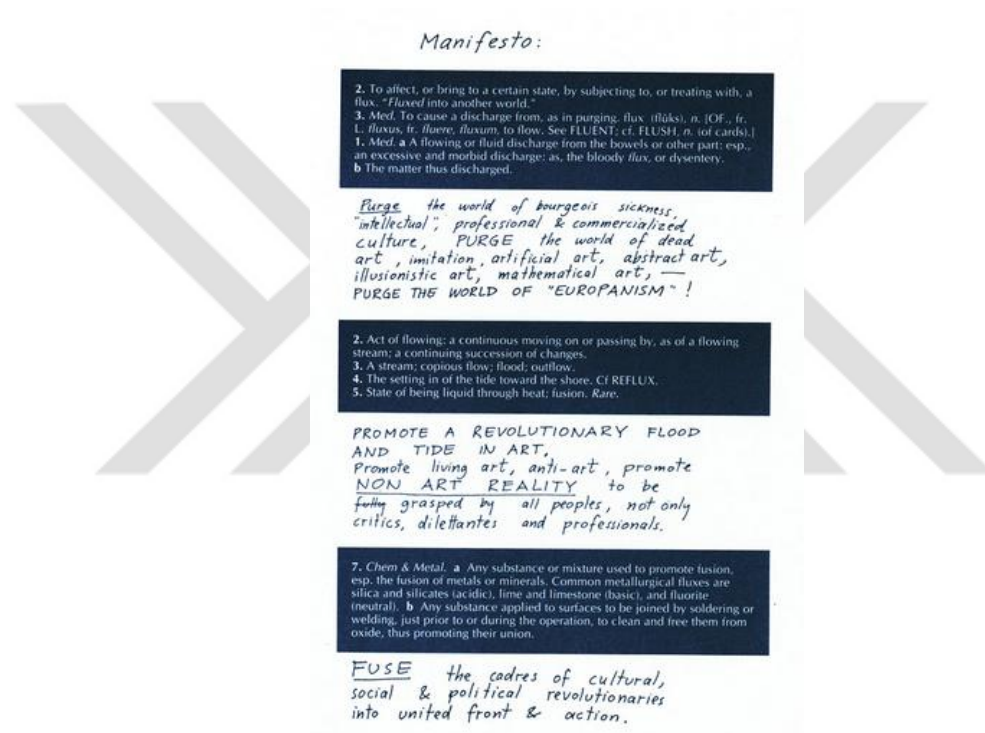 Manifesto:
2. To affect, or bring to a certain state, by subjecting to, or treating with, a
flux. "Fluxed into another world."
3. Med. To cause a discharge from, as in purging. flux (flŭks), n. [OF., fr.
L. fluxus, fr. fluere, fluxum, to flow. See FLUENT; cf. FLUSH, n. (of cards).]
1. Med. a A flowing or fluid discharge from the bowels or other part: esp.,
an excessive and morbid discharge: as, the bloody flux, or dysentery.
b The matter thus discharged.
Purge the world of bourgeois sickness,
"intellectual", professional & commercialized
culture, PURGE the world of dead
art, imitation, artificial art, abstract art,
illusionistic art, mathematical art, —
PURGE THE WORLD OF "EUROPANISM"!
2. Act of flowing: a continuous moving on or passing by, as of a flowing
stream; a continuing succession of changes.
3. A stream; copious flow; flood; outflow.
4. The setting in of the tide toward the shore. Cf REFLUX.
5. State of being liquid through heat; fusion. Rare.
PROMOTE A REVOLUTIONARY FLOOD
AND TIDE IN ART,
Promote living art, anti-art, promote
NON ART REALITY to be
fully grasped by all peoples, not only
critics, dilettantes and professionals.
7. Chem & Metal. a Any substance or mixture used to promote fusion,
esp. the fusion of metals or minerals. Common metallurgical fluxes are
silica and silicates (acidic), lime and limestone (basic), and fluorite
(neutral). b Any substance applied to surfaces to be joined by soldering or
welding, just prior to or during the operation, to clean and free them from
oxide, thus promoting their union.
FUSE the cadres of cultural,
social & political revolutionaries
into united front & action.